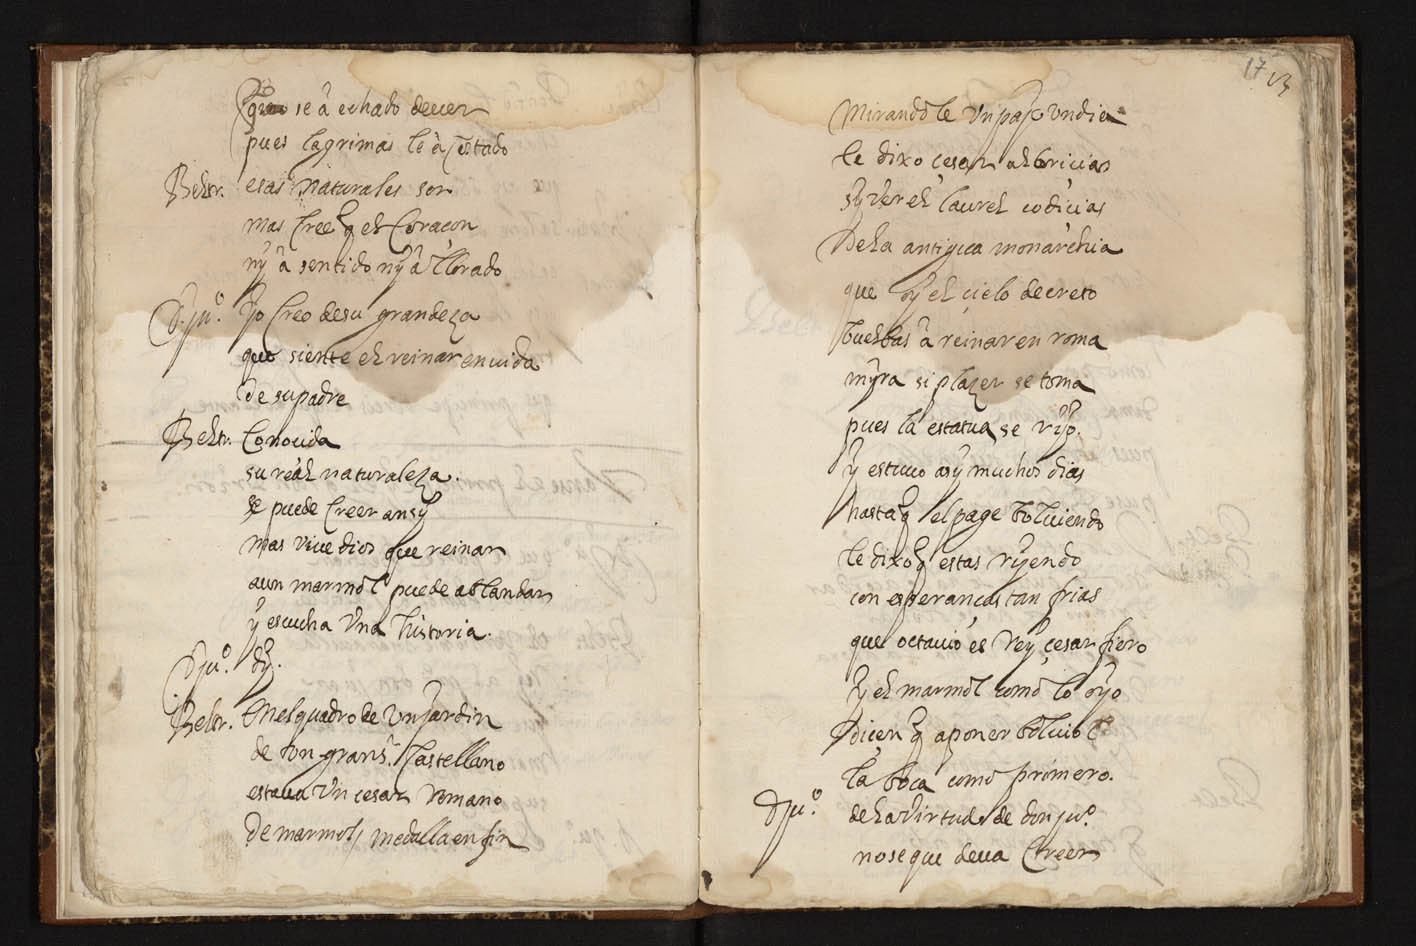 se â echado dever
pues lagrimas le à costado
Beltr. esas naturales son
mas Cree q̃ el Coraçon
ny â sentido ny â llorado
D. ju.º Yo Creo de su grandeza
que siente el reinar en vida
de su padre
Beltr. Conocida
su reâl naturaleza.
se puede Creer ansy
mas vive dios que reinar
aun marmôl puede ablandar
y escucha vna historia.
D ju.º dy.
Beltr. En el quadro de vn jardin
de vn gran s.r Castellano
estaua vn cesar romano
de marmol, medalla en fin
17
Mirandole vn paje vn dia
le dixo cesar albricias
sy ver el laurel codicias
De la antigua monarchia
que oy el cielo decreto
buelbas â reinar en roma
myra si plazer se toma
pues la estatua se ryo.
y estuuo asy muchos dias
hasta q̃ el page bolviendo
le dixo q̃ estas ryendo
con esperancas tan frias
que octauio es Rey cesar fiero
y el marmôl como lo oyo
dicen q̃ a poner bolvio
la boca como primero.
D ju.º de la virtud de don ju.º
no se que deua Creer